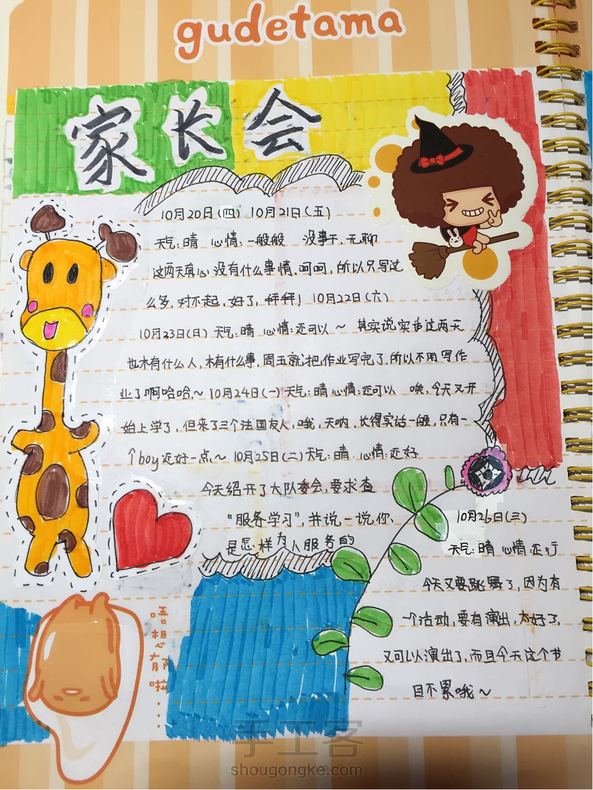 gudetama
家长会
10月20日(四) 10月21日(五)
天气:晴 心情:一般般 没事干,无聊
这两天真心没有什么事情,呵呵,所以只写这
么多,对不起,好了,拜拜! 10月22日(六)
10月23日(日) 天气:晴 心情:还可以~ 其实说实话过两天
也木有什么人,木有什么事,周五就把作业写完了,所以不用写作
业了啊哈哈~ 10月24日(一)天气:晴 心情:还可以 唉,今天又开
始上学了,但来了三个法国友人,哦,天呐,长得实话一般,只有一
个boy还好一点~ 10月25日(二)天气:晴 心情:还好
今天绍开了大队委会,要求查
“服务学习”,并说一说你,
是怎样为人服务的
10月26日(三)
天气:晴 心情:还行
今天又要跳舞了,因为有
一个活动,要有演出,太好了,
又可以演出了,而且今天这个节
目不累哦~
唔
想
啦...
手工客
shougongke.com